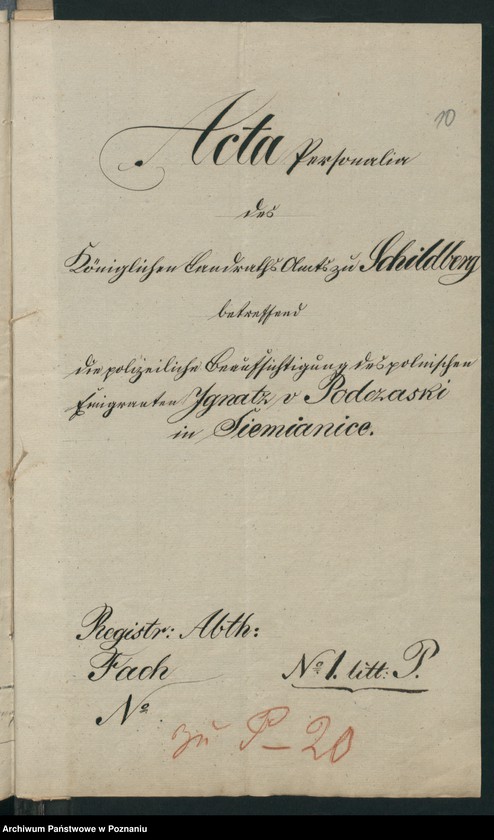 10
Acta Personalia
des
Königlichen Landraths Amts zu Schildberg
betreffend
die polizeiliche Beaufsichtigung des polnischen
Emigranten Ignatz v Podczaski
in Siemianice.
Registr: Abth:
Fach
No 1. litt: P.
No
zu P-20
Archiwum Państwowe w Poznaniu